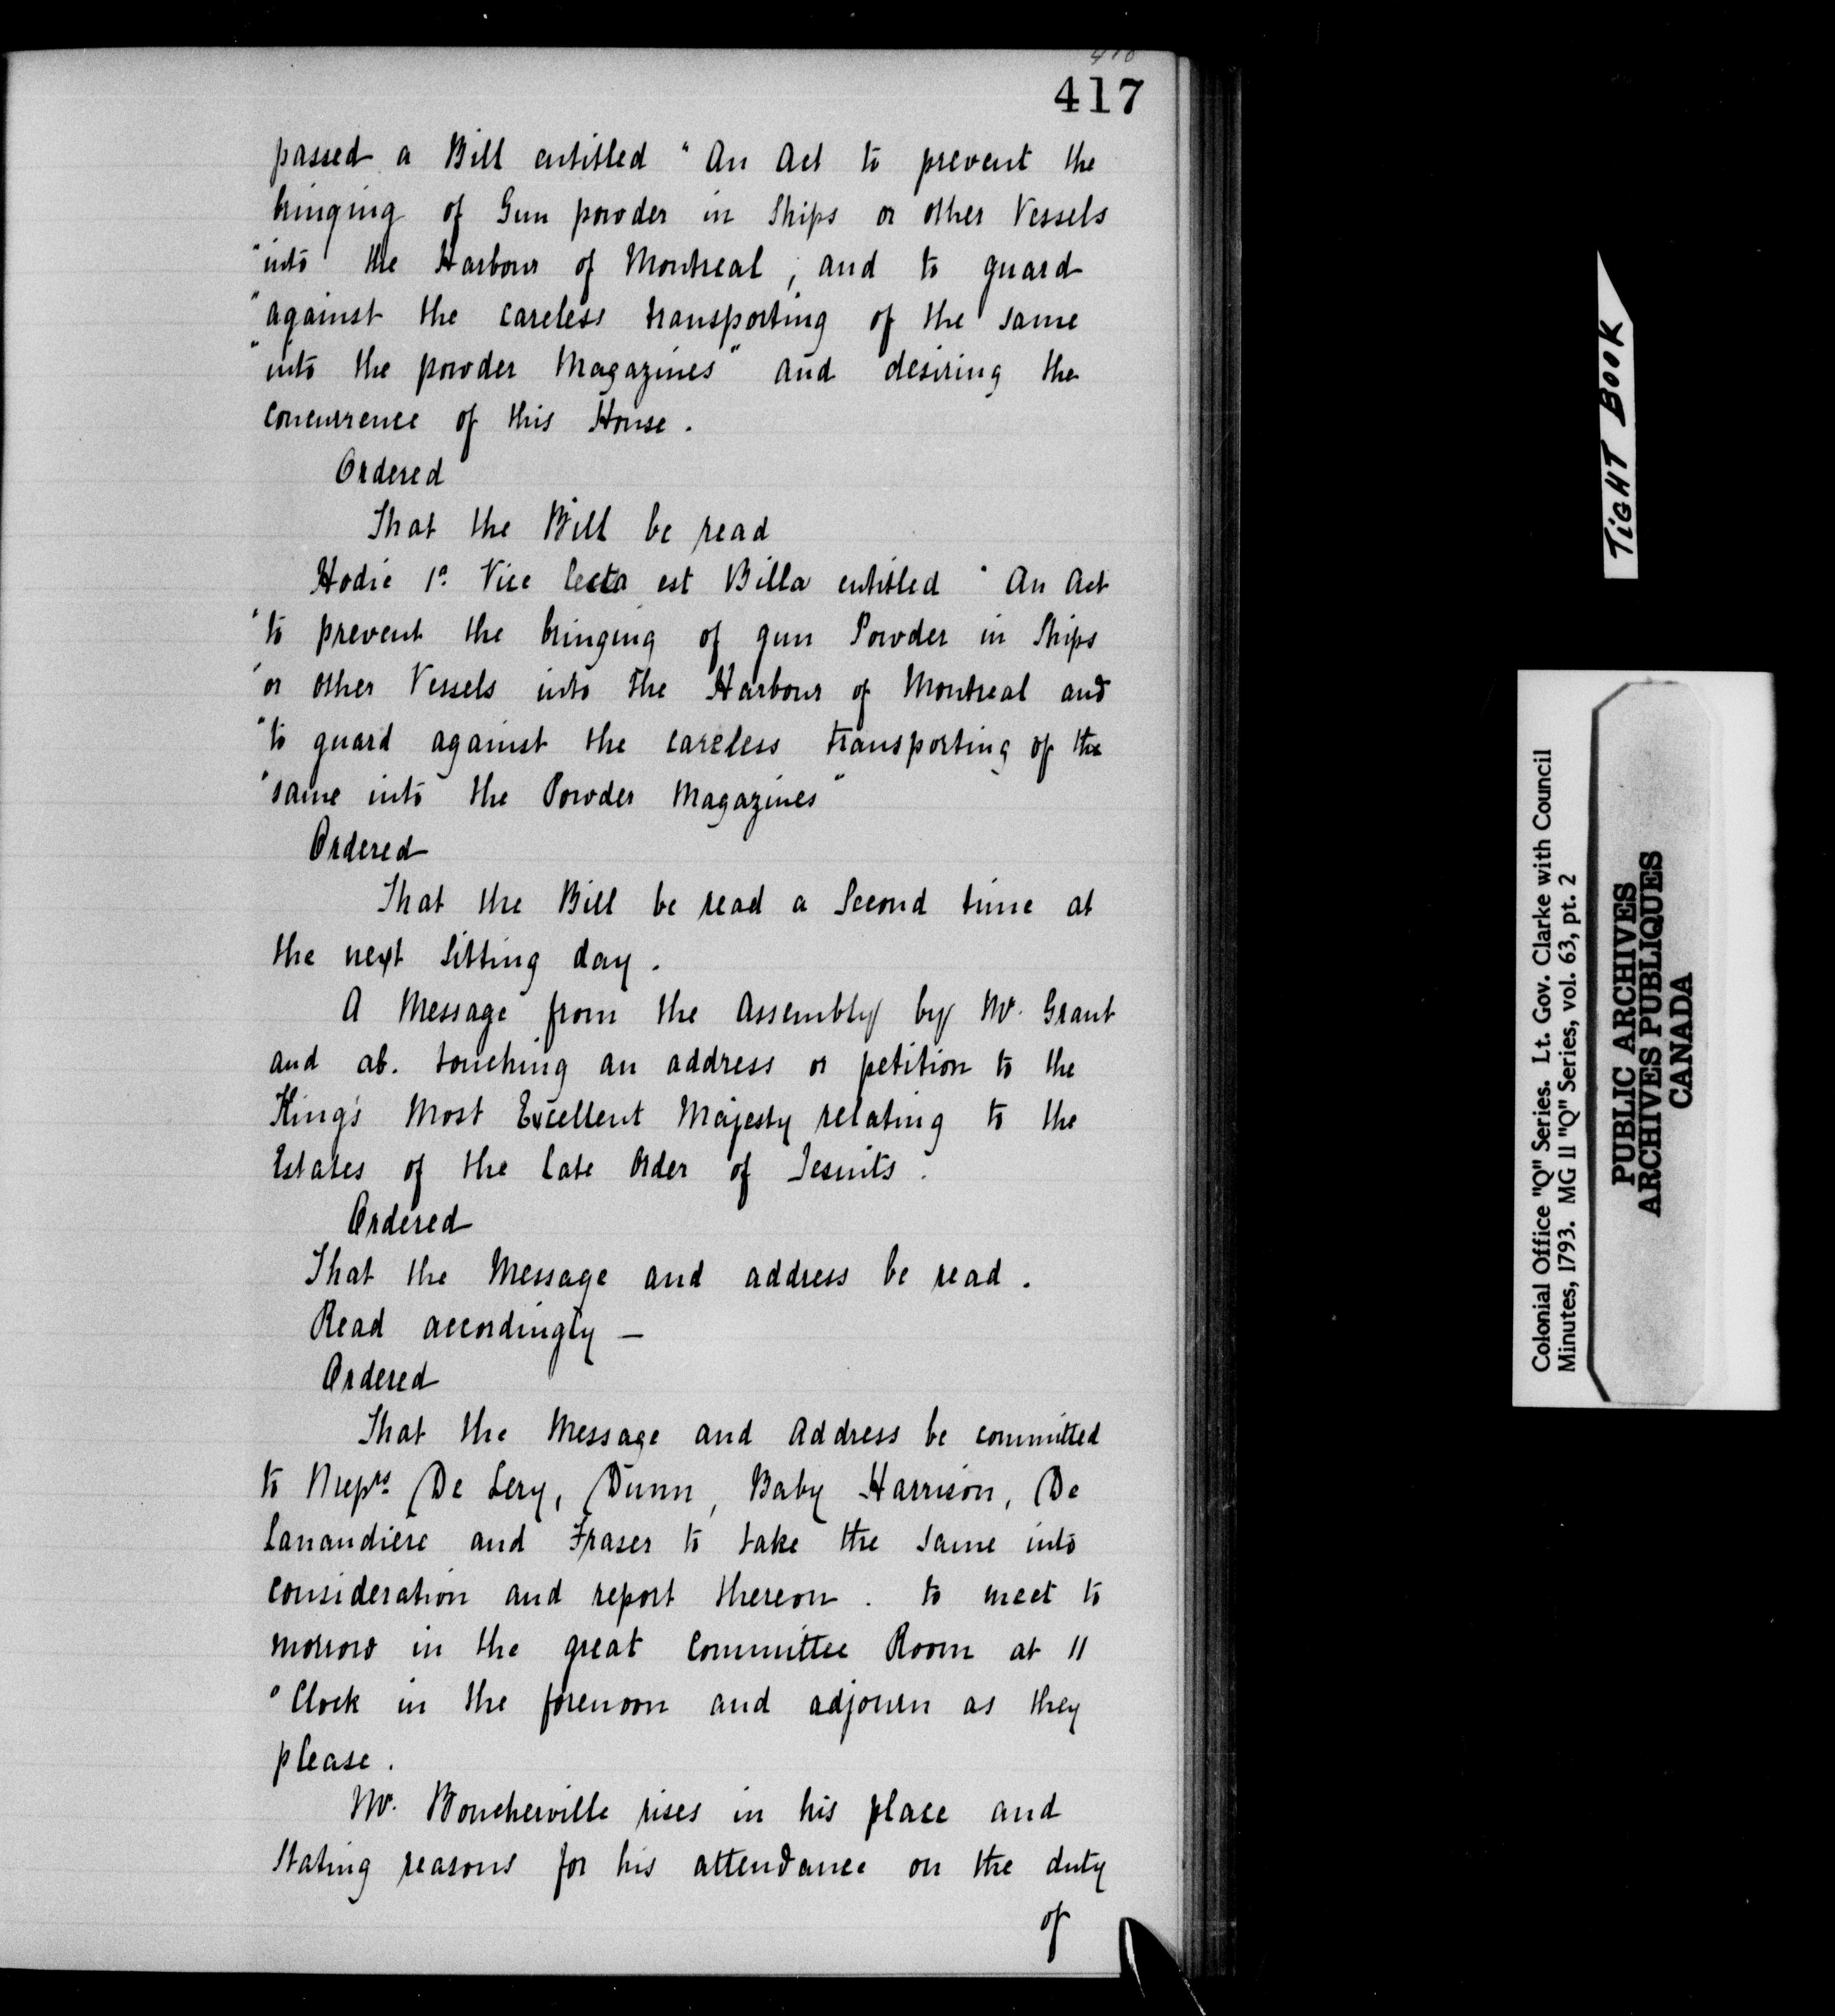 417
passed a Bill entitled "An Act to prevent the
bringing of Gun powder in Ships or other Vessels
"into the Harbour of Montreal, and to guard
"against the careless transporting of the same
"into the powder Magazines" and desiring the
concurrence of this House.
Ordered
That the Bill be read
Hodie 1a. Vice lecta est Billa entitled "An Act
"to prevent the bringing of gun Powder in Ships
"or other Vessels into the Harbour of Montreal and
"to guard against the careless transporting of the
"same into the Powder Magazines"
Ordered
That the Bill be read a Second time at
the next Sitting day.
A Message from the Assembly by Mr. Grant
and al. touching an address or petition to the
King's Most Excellent Majesty relating to the
Estates of the late Order of Jesuits.
Ordered
That the Message and address be read.
Read accordingly —
Ordered
That the Message and Address be committed
to Messrs. De Lery, Dunn, Baby Harrison, De
Lanandiere and Fraser to take the same into
consideration and report thereon. to meet to
morrow in the great Committee Room at 11
o'Clock in the forenoon and adjourn as they
please.
Mr. Boucherville rises in his place and
Stating reasons for his attendance on the duty
of
TIGHT BOOK
Colonial Office "Q" Series. Lt. Gov. Clarke with Council
Minutes, 1793. MG 11 "Q" Series, vol. 63, pt. 2
PUBLIC ARCHIVES
ARCHIVES PUBLIQUES
CANADA